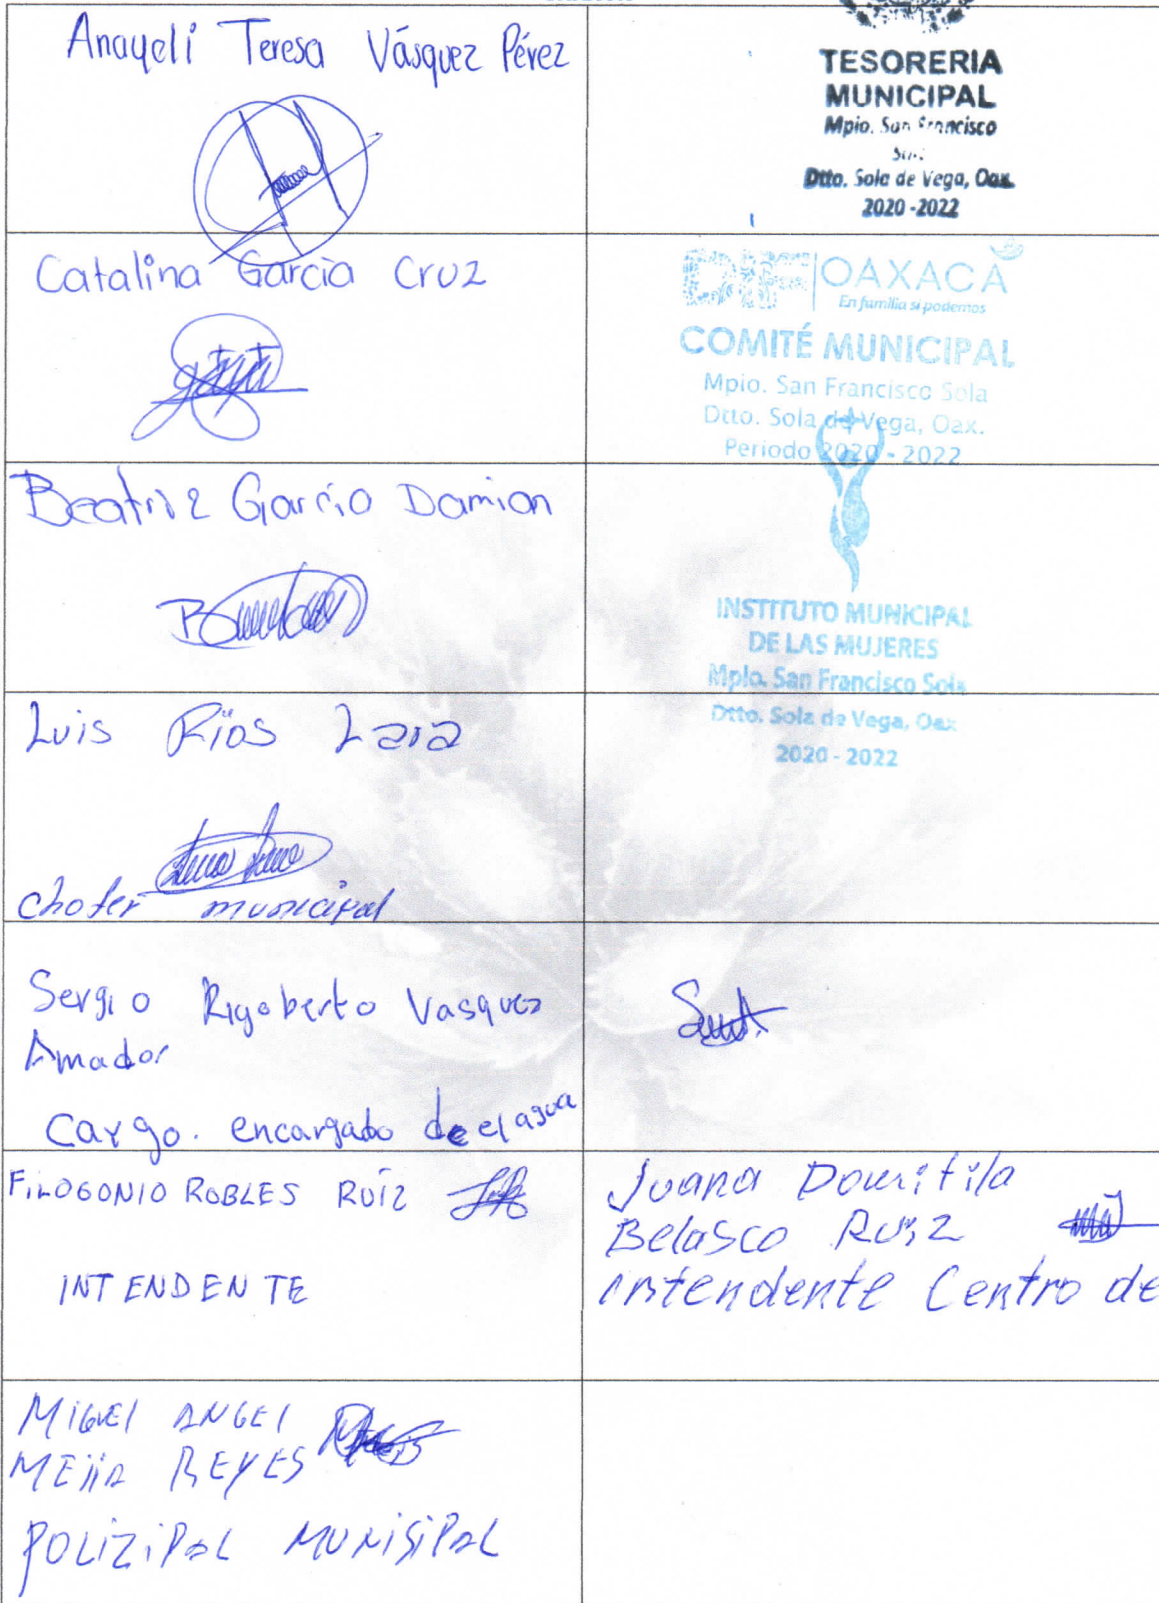 Anayeli Teresa Vásquez Pérez
TESORERIA
MUNICIPAL
Mpio. San Francisco
Dtto. Sola de Vega, Oax.
2020 - 2022
Catalina García Cruz
DIF OAXACA
En familia sí podemos
COMITÉ MUNICIPAL
Mpio. San Francisco Sola
Dtto. Sola de Vega, Oax.
Periodo 2020 - 2022
Beatriz García Damian
INSTITUTO MUNICIPAL
DE LAS MUJERES
Mpio. San Francisco Sola
Dtto. Sola de Vega, Oax.
2020 - 2022
Luis Ríos Lara
chofer municipal
Sergio Rigoberto Vasquez
Amador
Cargo. encargado de el agua
FILOGONIO ROBLES RUÍZ
INTENDENTE
Juana Domitila
Belasco Ruiz
intendente Centro de
MIGUEL ANGEL
MEJIA REYES
POLIZIPAL MUNISIPAL